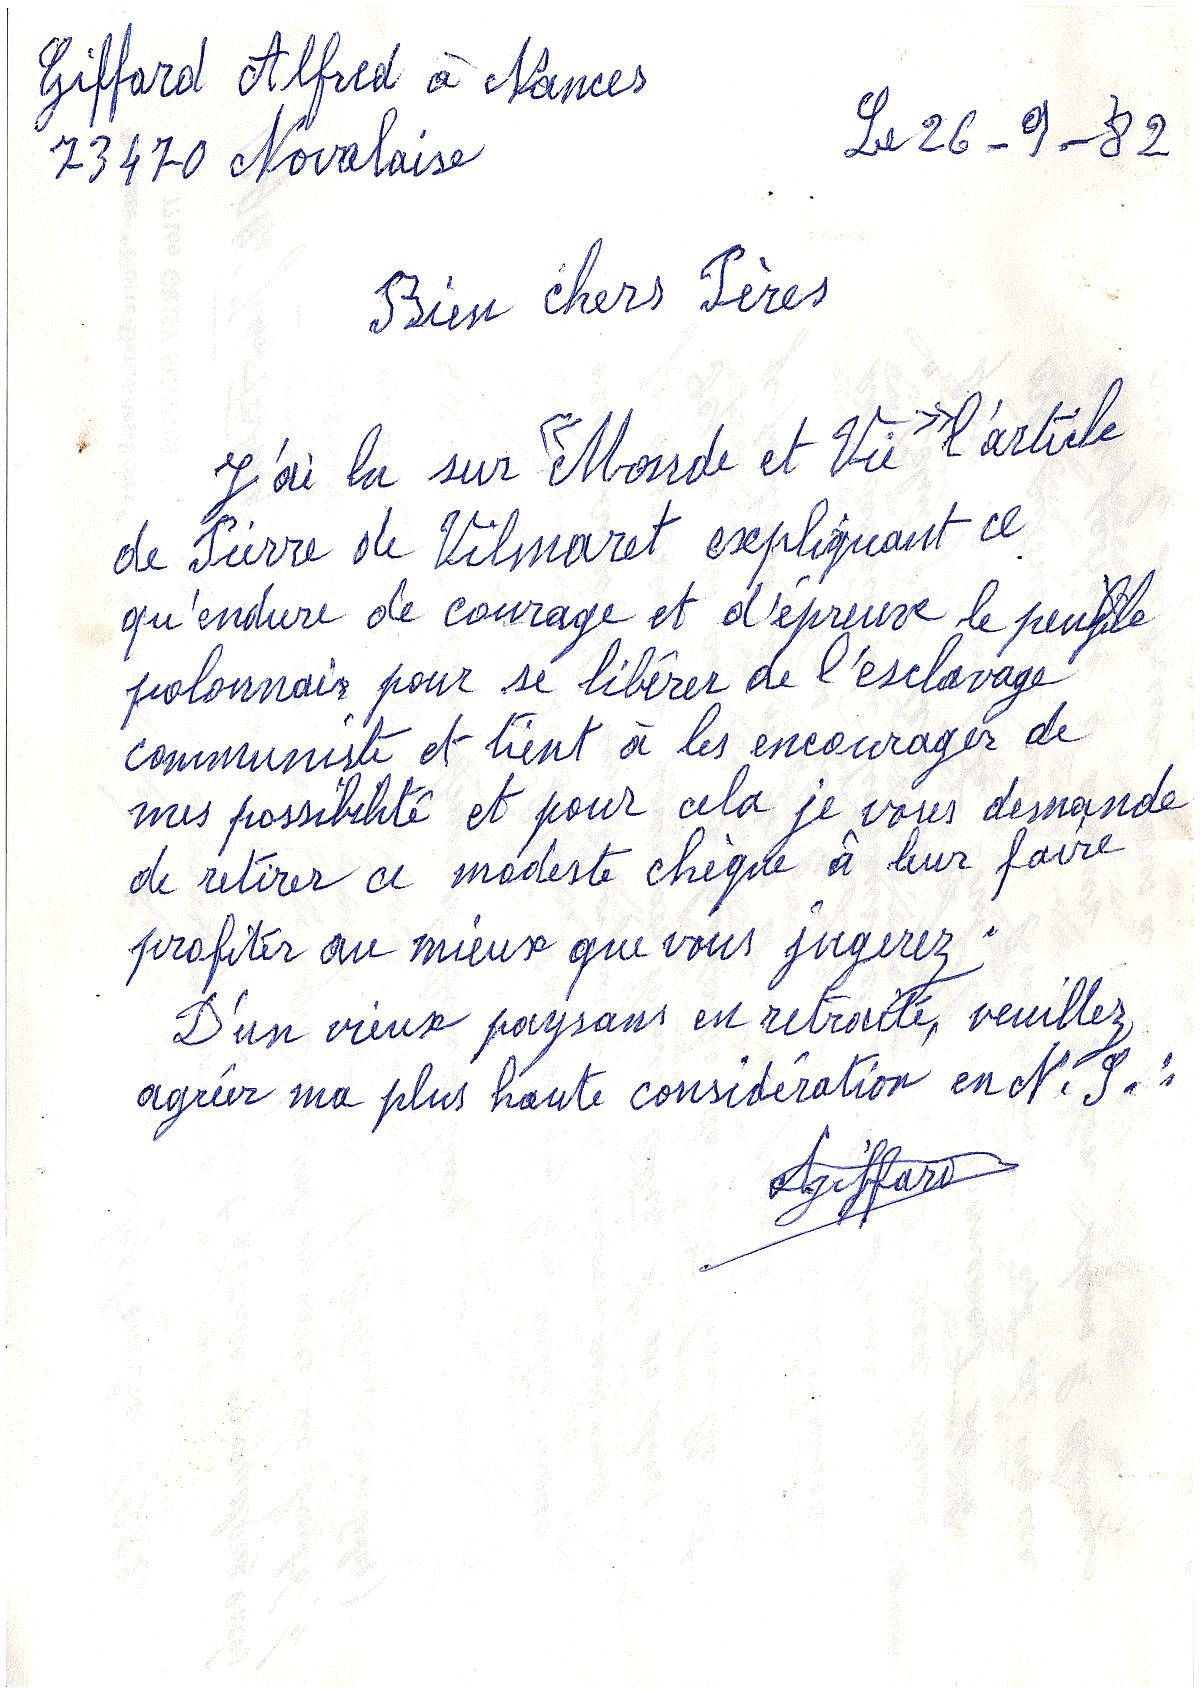 Giffard Alfred à Nances
73470 Novalaise
Le 26-9-82
Bien chers Pères
J'ai lu sur "Monde et Vie" l'article
de Pierre de Vilmaret expliquant ce
qu'endure de courage et d'épreuve le peuple
polonnais pour se libérer de l'esclavage
communiste et tient à les encourager de
mes possibilité et pour cela je vous demande
de retirer ce modeste chèque à leur faire
profiter au mieux que vous jugerez.
D'un vieux paysans en retraité, veuillez
agréer ma plus haute considération en N. S.
AGiffard